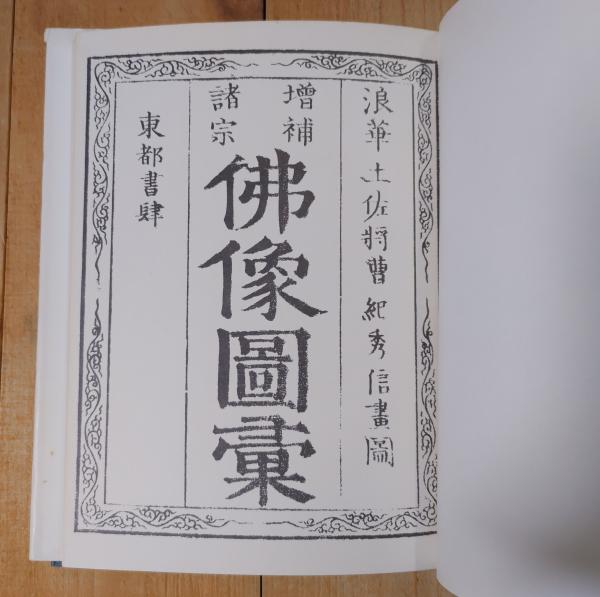 浪華土佐將曹紀秀信畫圖
增補
諸宗
佛像圖彙
東都書肆